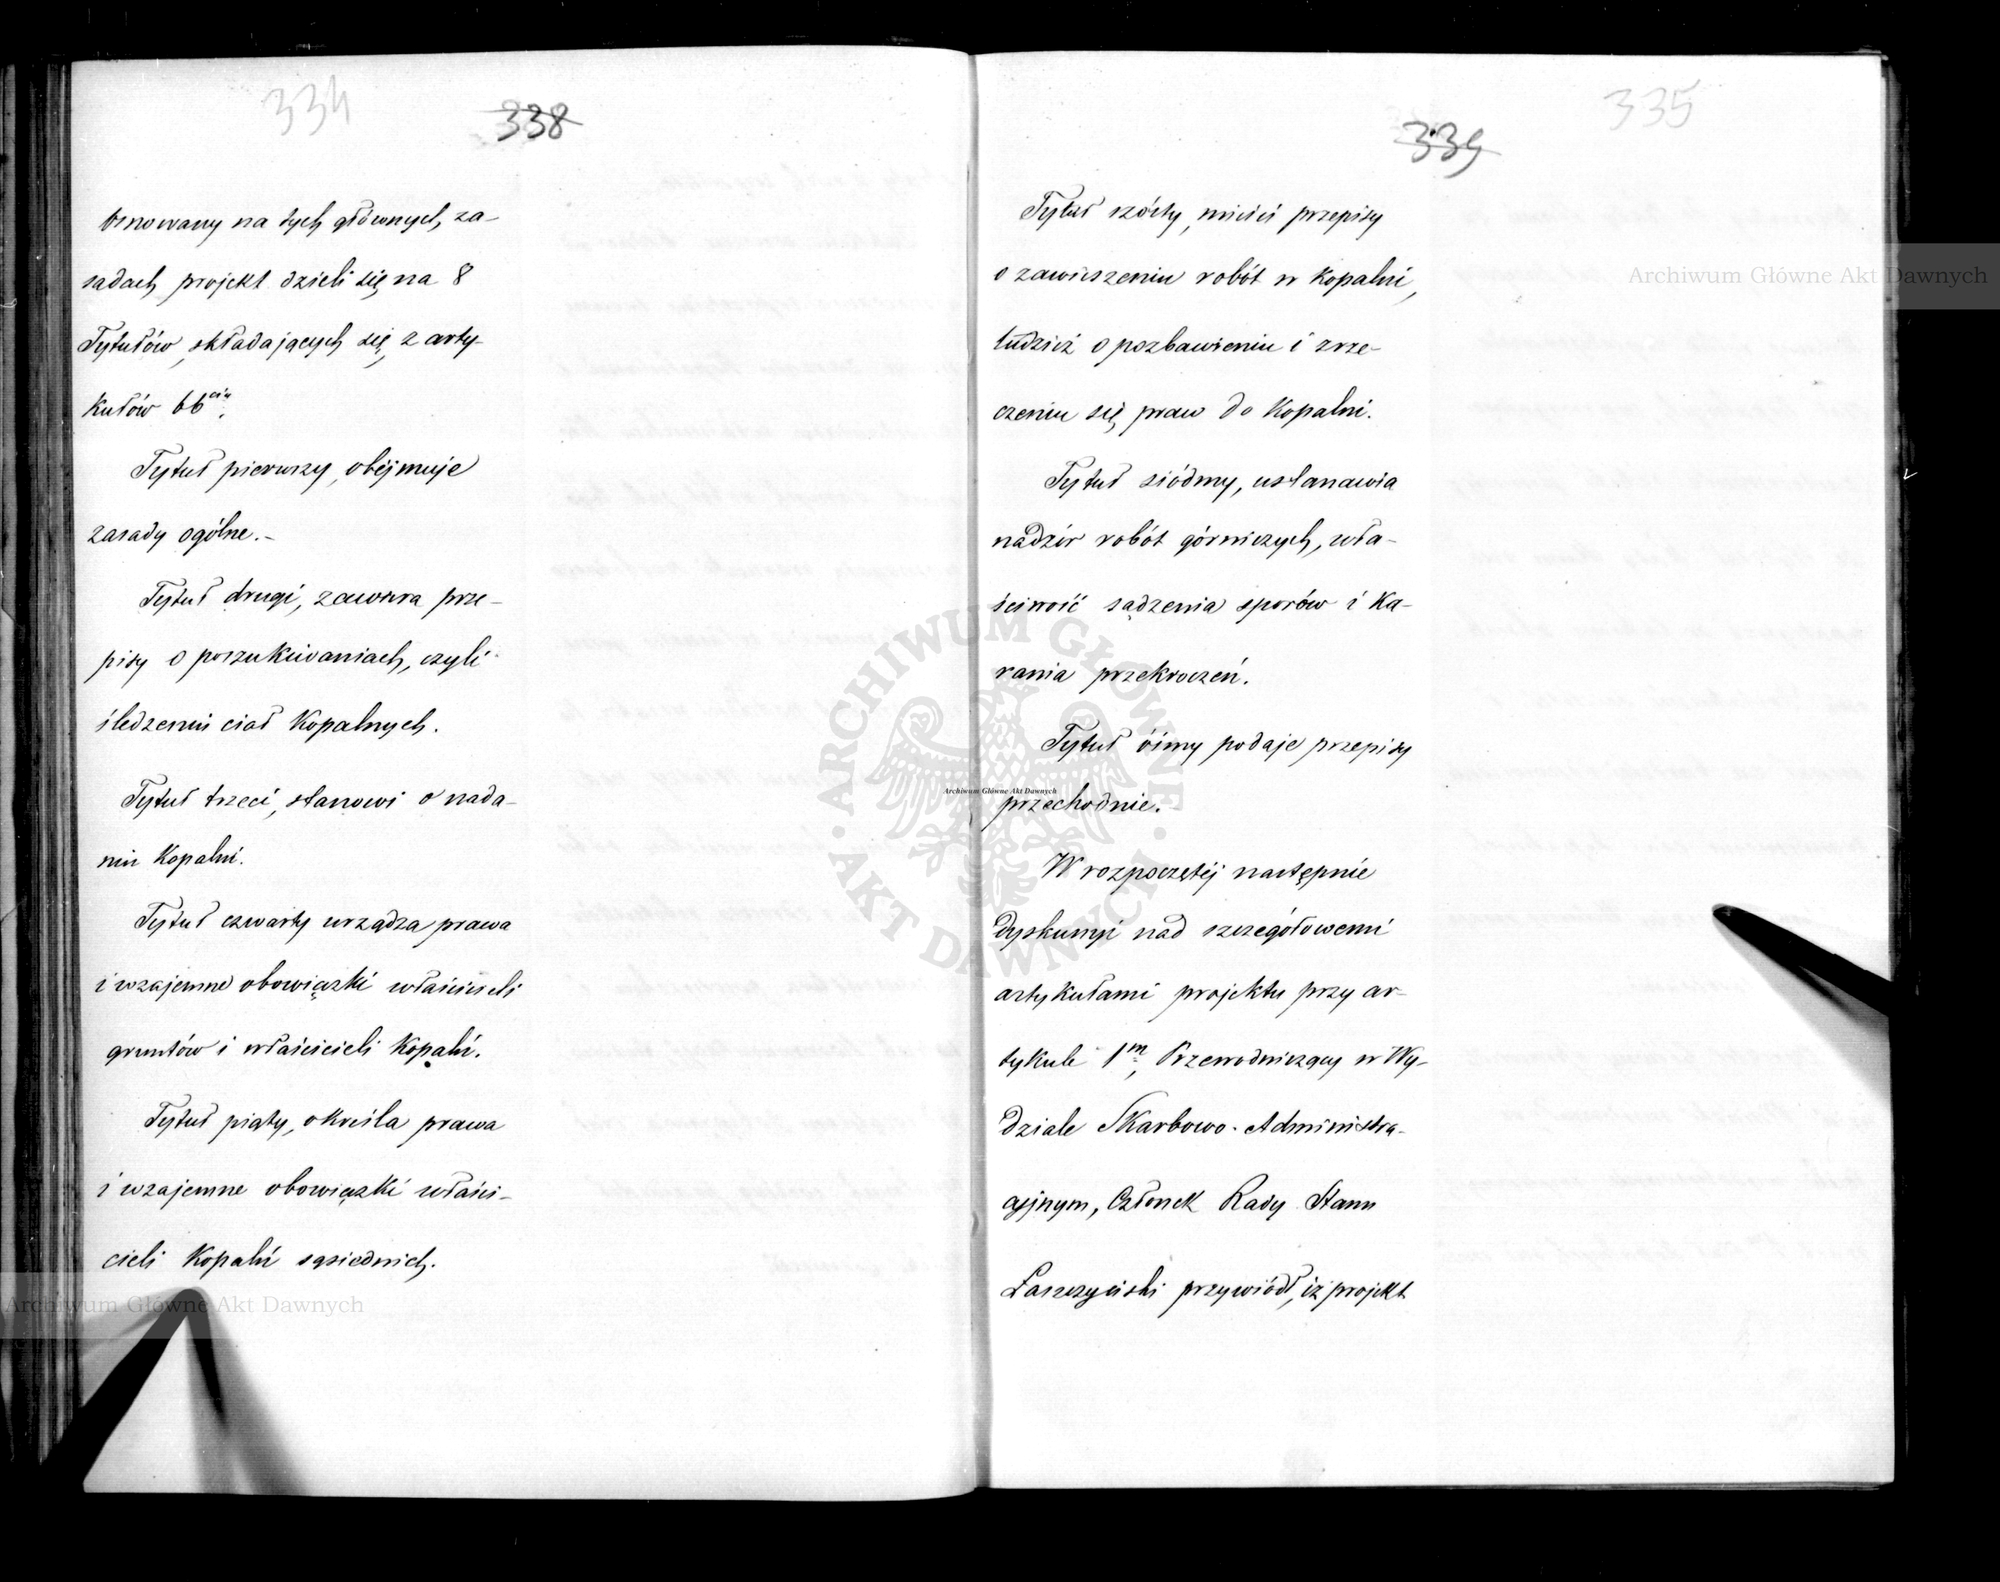 334
338
Osnowany na tych głównych za-
sadach projekt dzieli się na 8
Tytułów, składających się z arty-
kułów 66ciu.
Tytuł pierwszy, obéjmuje
zasady ogólne.-
Tytuł drugi, zawiera prze-
pisy o poszukiwaniach, czyli
śledzeniu ciał Kopalnych.
Tytuł trzeci, stanowi o nada-
niu Kopalni.
Tytuł czwarty urządza prawa
i wzajemne obowiązki właścicieli
gruntów i właścicieli Kopalń.
Tytuł piąty, okréśla prawa
i wzajemne obowiązki właści-
cieli Kopalń sąsiednich.
335
339
Tytuł szósty, mieści przepisy
o zawieszeniu robót w Kopalni,
tudzież o pozbawieniu i zrze-
czeniu się praw do Kopalni.
Tytuł siódmy, ustanawia
nadzór robót górniczych, wła-
ściwość sądzenia sporów i Ka-
rania przekroczeń.
Tytuł ósmy podaje przepisy
przechodnie.
W rozpoczętéj następnie
dyskussyi nad szczegółowemi
artykułami projektu przy ar-
tykule 1m, Przewodniczący w Wy-
dziale Skarbowo-Administra-
cyjnym, Członek Rady Stanu
Łaszczyński przywiódł, iż projekt
Archiwum Główne Akt Dawnych
Archiwum Główne Akt Dawnych
Archiwum Główne Akt Dawnych
ARCHIWUM GŁÓWNE AKT DAWNYCH